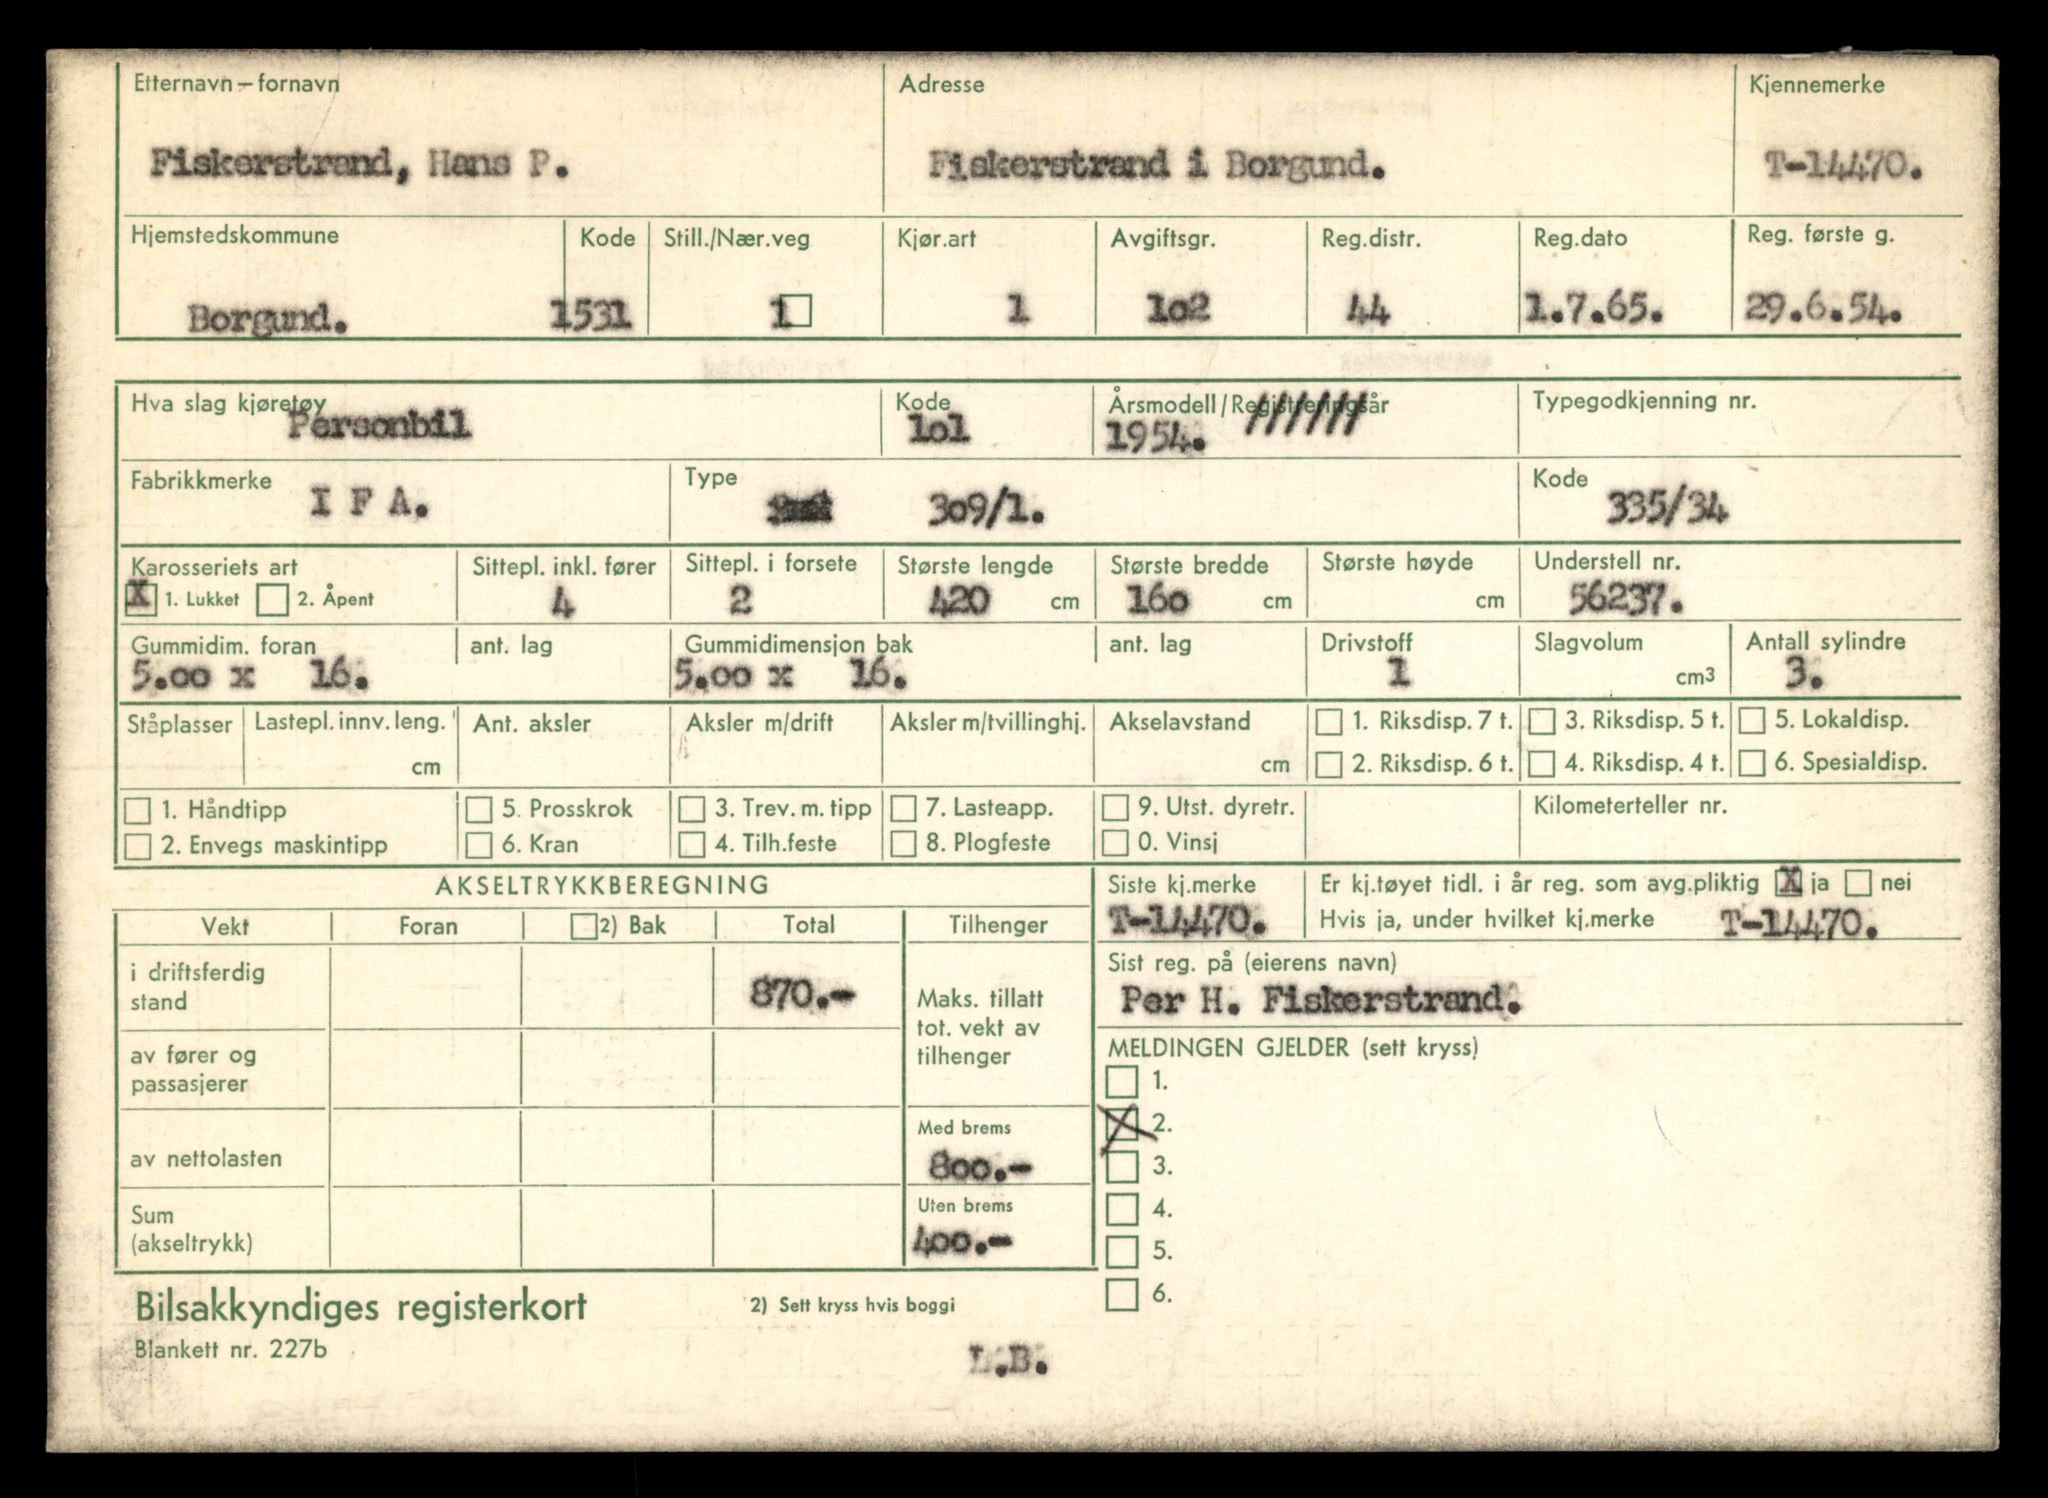 Etternavn – fornavn Adresse Kjennemerke
Fiskerstrand, Hans P. Fiskerstrand i Borgund. T-14470.
Hjemstedskommune Kode Still./Nær.veg Kjør.art Avgiftsgr. Reg.distr. Reg.dato Reg. første g.
Borgund. 1531 1 1 1o2 44 1.7.65. 29.6.54.
Hva slag kjøretøy Kode Årsmodell/Registreringsår Typegodkjenning nr.
Personbil 1o1 1954. //////
Fabrikkmerke Type Kode
I F A. 3o9/1. 335/34
Karosseriets art Sittepl. inkl. fører Sittepl. i forsete Største lengde Største bredde Største høyde Understell nr.
X 1. Lukket 2. Åpent 4 2 420 cm 16o cm cm 56237.
Gummidim. foran ant. lag Gummidimensjon bak ant. lag Drivstoff Slagvolum Antall sylindre
5.oo x 16. 5.oo x 16. 1 cm3 3.
Ståplasser Lastepl. innv. leng. Ant. aksler Aksler m/drift Aksler m/tvillinghj. Akselavstand 1. Riksdisp. 7 t. 3. Riksdisp. 5 t. 5. Lokaldisp.
cm cm 2. Riksdisp. 6 t. 4. Riksdisp. 4 t. 6. Spesialdisp.
1. Håndtipp 5. Prosskrok 3. Trev. m. tipp 7. Lasteapp. 9. Utst. dyretr. Kilometerteller nr.
2. Envegs maskintipp 6. Kran 4. Tilh.feste 8. Plogfeste 0. Vinsj
AKSELTRYKKBEREGNING Siste kj.merke Er kj.tøyet tidl. i år reg. som avg.pliktig X ja nei
Vekt Foran 2) Bak Total Tilhenger T-14470. Hvis ja, under hvilket kj.merke T-14470.
i driftsferdig Sist reg. på (eierens navn)
stand 870.- Maks. tillatt Per H. Fiskerstrand.
tot. vekt av
av fører og tilhenger MELDINGEN GJELDER (sett kryss)
passasjerer 1.
Med brems X 2.
av nettolasten 800.- 3.
Sum Uten brems 4.
(akseltrykk) 400.- 5.
Bilsakkyndiges registerkort 2) Sett kryss hvis boggi 6.
Blankett nr. 227b L.B.